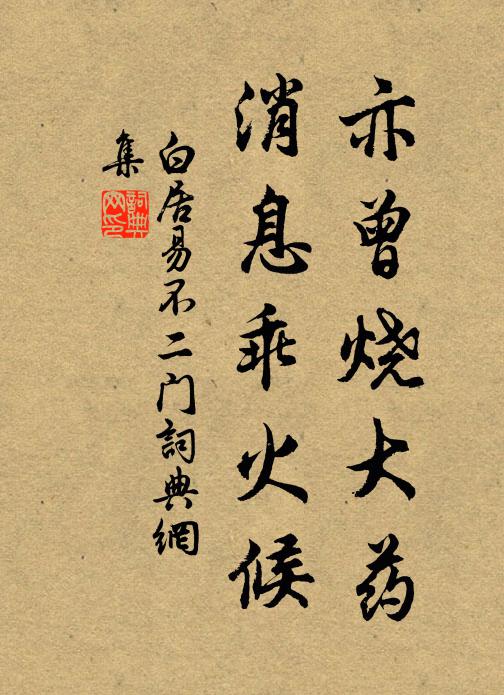 亦曾烧大药
消息乖火候
白居易不二门詞典網
集
詞典
网印